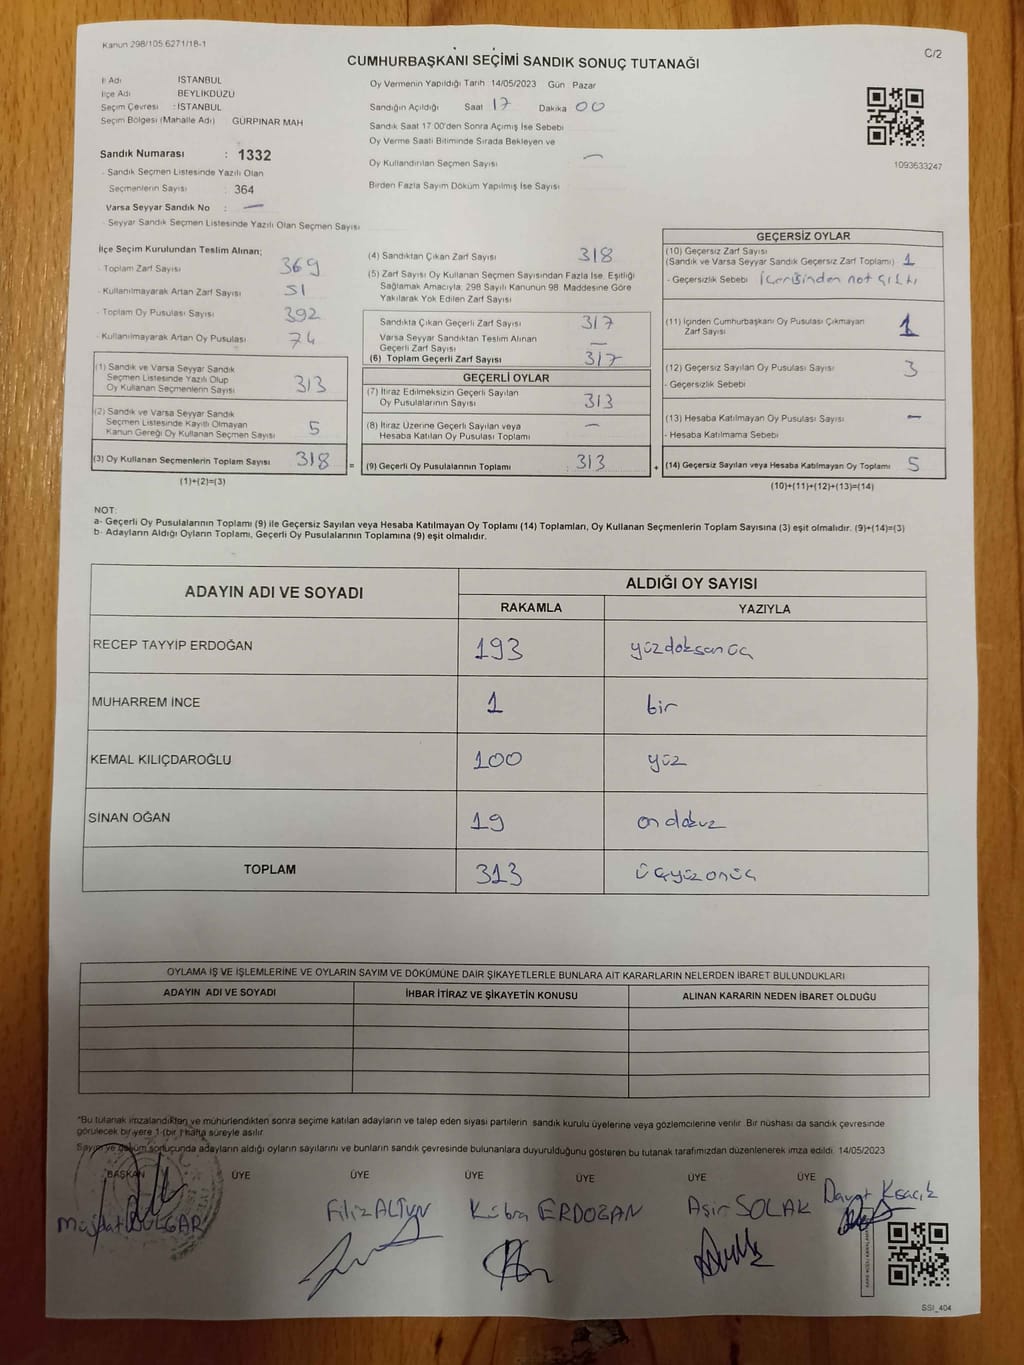 Kanun 298/105.6271/18-1
C/2
CUMHURBAŞKANI SEÇİMİ SANDIK SONUÇ TUTANAĞI
İl Adı İSTANBUL
İlçe Adı BEYLİKDÜZÜ
Seçim Çevresi : İSTANBUL
Seçim Bölgesi (Mahalle Adı) : GÜRPINAR MAH
Sandık Numarası : 1332
- Sandık Seçmen Listesinde Yazılı Olan
Seçmenlerin Sayısı : 364
Varsa Seyyar Sandık No : —
- Seyyar Sandık Seçmen Listesinde Yazılı Olan Seçmen Sayısı
Oy Vermenin Yapıldığı Tarih 14/05/2023 Gün Pazar
Sandığın Açıldığı Saat 17 Dakika 00
Sandık Saat 17:00'den Sonra Açımış İse Sebebi
Oy Verme Saati Bitiminde Sırada Bekleyen ve
Oy Kullandırılan Seçmen Sayısı —
Birden Fazla Sayım Döküm Yapılmış İse Sayısı
1093633247
İlçe Seçim Kurulundan Teslim Alınan;
- Toplam Zarf Sayısı 369
- Kullanılmayarak Artan Zarf Sayısı 51
- Toplam Oy Pusulası Sayısı 392
- Kullanılmayarak Artan Oy Pusulası 74
(1) Sandık ve Varsa Seyyar Sandık
Seçmen Listesinde Yazılı Olup
Oy Kullanan Seçmenlerin Sayısı 313
(2) Sandık ve Varsa Seyyar Sandık
Seçmen Listesinde Kayıtlı Olmayan
Kanun Gereği Oy Kullanan Seçmen Sayısı 5
(3) Oy Kullanan Seçmenlerin Toplam Sayısı 318
(1)+(2)=(3)
(4) Sandıktan Çıkan Zarf Sayısı 318
(5) Zarf Sayısı Oy Kullanan Seçmen Sayısından Fazla İse, Eşitliği
Sağlamak Amacıyla, 298 Sayılı Kanunun 98. Maddesine Göre
Yakılarak Yok Edilen Zarf Sayısı
Sandıkta Çıkan Geçerli Zarf Sayısı 317
Varsa Seyyar Sandıktan Teslim Alınan
Geçerli Zarf Sayısı —
(6) Toplam Geçerli Zarf Sayısı 317
GEÇERLİ OYLAR
(7) İtiraz Edilmeksizin Geçerli Sayılan
Oy Pusulalarının Sayısı 313
(8) İtiraz Üzerine Geçerli Sayılan veya
Hesaba Katılan Oy Pusulası Toplamı —
= (9) Geçerli Oy Pusulalarının Toplamı : 313
GEÇERSİZ OYLAR
(10) Geçersiz Zarf Sayısı
(Sandık ve Varsa Seyyar Sandık Geçersiz Zarf Toplamı) 1
- Geçersizlik Sebebi içerisinden not çıktı
(11) İçinden Cumhurbaşkanı Oy Pusulası Çıkmayan
Zarf Sayısı 1
(12) Geçersiz Sayılan Oy Pusulası Sayısı 3
- Geçersizlik Sebebi
(13) Hesaba Katılmayan Oy Pusulası Sayısı —
- Hesaba Katılmama Sebebi
+ (14) Geçersiz Sayılan veya Hesaba Katılmayan Oy Toplamı 5
(10)+(11)+(12)+(13)=(14)
NOT:
a- Geçerli Oy Pusulalarının Toplamı (9) ile Geçersiz Sayılan veya Hesaba Katılmayan Oy Toplamı (14) Toplamları, Oy Kullanan Seçmenlerin Toplam Sayısına (3) eşit olmalıdır. (9)+(14)=(3)
b- Adayların Aldığı Oyların Toplamı, Geçerli Oy Pusulalarının Toplamına (9) eşit olmalıdır.
ADAYIN ADI VE SOYADI ALDIĞI OY SAYISI
RAKAMLA YAZIYLA
RECEP TAYYİP ERDOĞAN 193 yüzdoksanüç
MUHARREM İNCE 1 bir
KEMAL KILIÇDAROĞLU 100 yüz
SİNAN OĞAN 19 on dokuz
TOPLAM 313 üçyüzonüç
OYLAMA İŞ VE İŞLEMLERİNE VE OYLARIN SAYIM VE DÖKÜMÜNE DAİR ŞİKAYETLERLE BUNLARA AİT KARARLARIN NELERDEN İBARET BULUNDUKLARI
ADAYIN ADI VE SOYADI İHBAR İTİRAZ VE ŞİKAYETİN KONUSU ALINAN KARARIN NEDEN İBARET OLDUĞU
*Bu tutanak imzalandıktan ve mühürlendikten sonra seçime katılan adayların ve talep eden siyasi partilerin sandık kurulu üyelerine veya gözlemcilerine verilir. Bir nüshası da sandık çevresinde
görülecek bir yere 1 (bir) hafta süreyle asılır.
Sayım ve döküm sonucunda adayların aldığı oyların sayılarını ve bunların sandık çevresinde bulunanlara duyurulduğunu gösteren bu tutanak tarafımızdan düzenlenerek imza edildi. 14/05/2023
BAŞKAN ÜYE ÜYE ÜYE ÜYE ÜYE
BULGAR Filiz ALTUN Kübra ERDOĞAN Asır SOLAK
SSİ_404